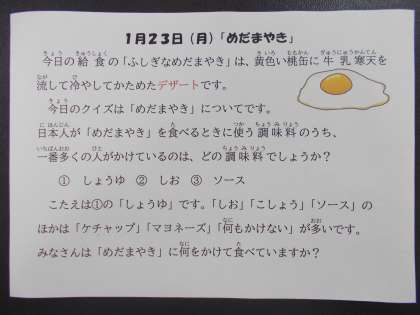 1月23日(月)「めだまやき」
今日の給食の「ふしぎなめだまやき」は、黄色い桃缶に牛乳寒天を
流して冷やしてかためたデザートです。
今日のクイズは「めだまやき」についてです。
日本人が「めだまやき」を食べるときに使う調味料のうち、
一番多くの人がかけているのは、どの調味料でしょうか?
① しょうゆ ② しお ③ ソース
こたえは①の「しょうゆ」です。「しお」「こしょう」「ソース」の
ほかは「ケチャップ」「マヨネーズ」「何もかけない」が多いです。
みなさんは「めだまやき」に何をかけて食べていますか?